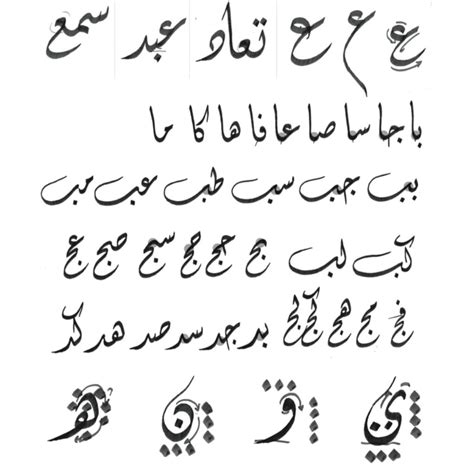 ع ع ع تعاد عبد سمع
با جا سا صا عا فا ها كا ما
بب جب سب طب عب مب
كب لب بج سج صج عج
فج مج هج كج لج بد جد سد صد هد كد
ي و ن